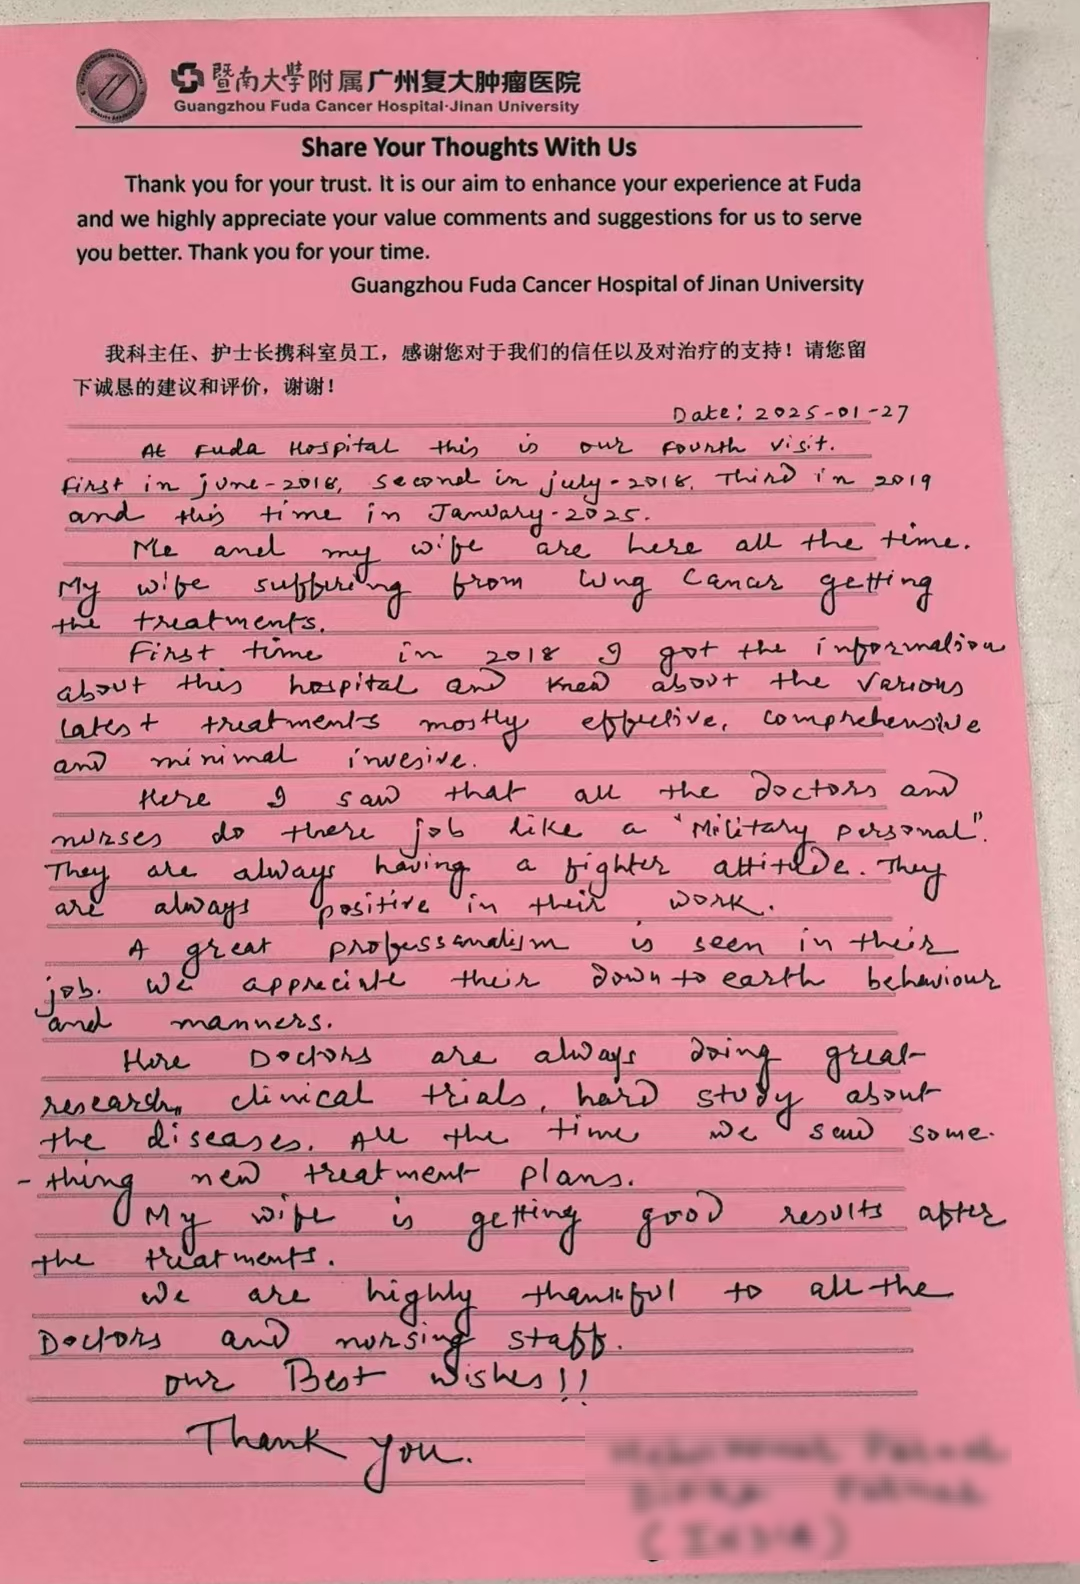 暨南大學附属广州复大肿瘤医院
Guangzhou Fuda Cancer Hospital·Jinan University
Share Your Thoughts With Us
Thank you for your trust. It is our aim to enhance your experience at Fuda
and we highly appreciate your value comments and suggestions for us to serve
you better. Thank you for your time.
Guangzhou Fuda Cancer Hospital of Jinan University
我科主任、护士长携科室员工，感谢您对于我们的信任以及对治疗的支持！请您留
下诚恳的建议和评价，谢谢！
Date: 2025-01-27
At Fuda Hospital this is our fourth visit.
First in june-2018, second in july-2018, Third in 2019
and this time in January-2025.
Me and my wife are here all the time.
My wife suffering from lung Cancar getting
the treatments.
First time in 2018 I got the information
about this hospital and knew about the various
latest treatments mostly effective, comprehensive
and minimal invesive.
Here I saw that all the doctors and
nurses do there job like a "Military personal".
They are always having a fighter attitude. They
are always positive in their work.
A great professanalism is seen in their
job. We appreciate their down to earth behaviour
and manners.
Here Doctors are always doing great
research, clinical trials, hard study about
the diseases. All the time we saw some-
-thing new treatment plans.
My wife is getting good results after
the treatments.
We are highly thankful to all the
Doctors and nursing staff.
our Best wishes!!
Thank you.